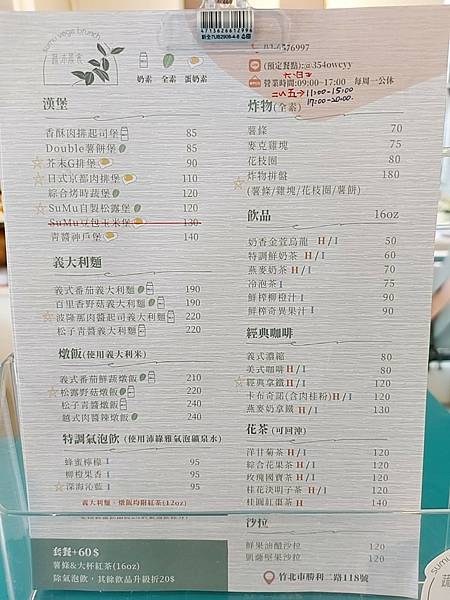 4713626612996
新全7UB2908-4-8 公司
sumu vege brunch
蔬沐蔬食
奶素 全素 蛋奶素
03-6576997
(預定餐點):@354owcyy
六、日
營業時間:09:00~17:00 每周一公休
二~五→11:00-15:00
17:00-20:00
漢堡
香酥肉排起司堡 85
Double薯餅堡 85
芥末G排堡 90
日式京都肉排堡 110
綜合烤時蔬堡 90
SuMu自製松露堡 120
SuMu豆包玉米堡 130
青醬神戶堡 140
義大利麵
義式番茄義大利麵 190
百里香野菇義大利麵 190
波隆那肉醬起司義大利麵 220
松子青醬義大利麵 220
燉飯(使用義大利米)
義式番茄鮮蔬燉飯 210
松露野菇燉飯 220
松子青醬燉飯 240
越式肉醬辣燉飯 240
特調氣泡飲 (使用沛綠雅氣泡礦泉水)
蜂蜜檸檬 I 95
柳橙果香 I 95
深海沁藍 I 95
義大利麵、燉飯均附紅茶(12oz)
套餐+60$
薯條&大杯紅茶(16oz)
除氣泡飲,其餘飲品升級折20$
炸物(全素)
薯條 70
麥克雞塊 75
花枝圈 80
炸物拼盤 180
(薯條/雞塊/花枝圈/薯餅)
飲品 16oz
奶香金萱烏龍 H/I 50
特調鮮奶茶 H/I 60
燕麥奶茶 H/I 70
冷泡茶 I 75
鮮榨柳橙汁 I 90
鮮榨奇異果汁 I 90
經典咖啡
義式濃縮 80
美式咖啡 H/I 80
經典拿鐵 H/I 120
卡布奇諾(含肉桂粉)H/I 120
燕麥奶拿鐵 H/I 130
花茶 (可回沖)
洋甘菊茶 H/I 120
綜合花果茶 H/I 120
玫瑰國寶茶 H/I 120
桂花決明子茶 H/I 120
桂圓紅棗茶 H 140
沙拉
鮮果油醋沙拉 120
凱薩堅果沙拉 120
竹北市勝利二路118號
sumu
蔬